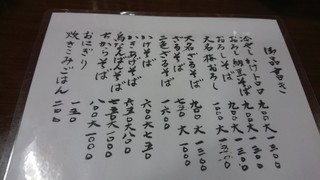 御品書き
冷やしかけトロロ 九〇〇 大 一一〇〇
おろし納豆そば 九〇〇 大 一一〇〇
おろしそば 九〇〇 大 一一〇〇
大名梅おろし 一〇〇〇 大 一二〇〇
大名ざるそば 九〇〇 大 一一〇〇
ざるそば 七五〇
二色ざるそば 一〇〇〇
かけそば 六〇〇 大 七五〇
かきあげそば 六五〇 大 八〇〇
鳥なんばんそば 七五〇 大 一〇〇〇
古からそば 八〇〇 大 一〇〇〇
おにぎり 一五〇
炊きこみごはん 二〇〇